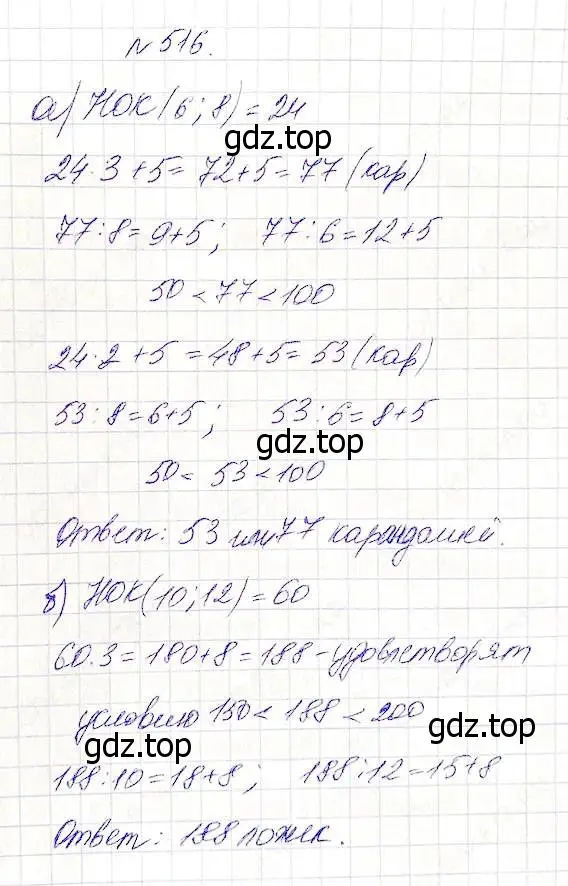 № 516.
а) НОК(6; 8) = 24
gdz.top
24·3+5= 72+5= 77 (кар)
77:8= 9+5; 77:6=12+5
50<77<100
24·2+5 =48+5= 53 (кар)
53:8=6+5; 53:6= 8+5
gdz.top
50< 53<100
Ответ: 53 или 77 карандашей.
б) НОК(10; 12) = 60
60·3=180+8=188-удовлетворят
условию 150< 188 < 200
gdz.top
188:10=18+8; 188:12=15+8
Ответ: 188 ложек.
gdz.top